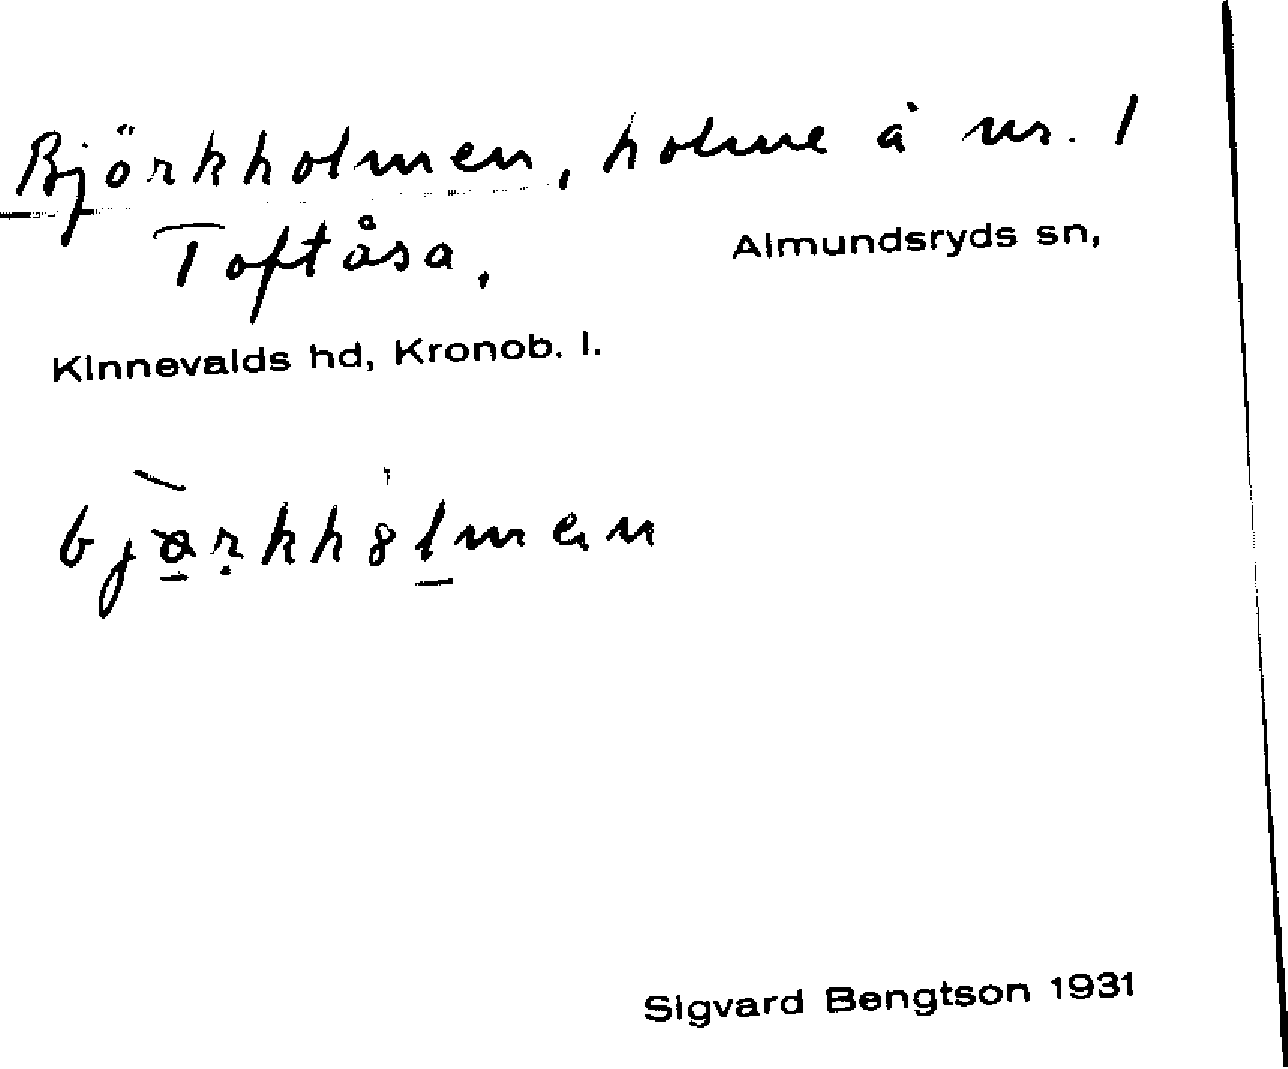 Björkholmen, holme å nr. 1
Toftåsa, Almundsryds sn,
Kinnevalds hd, Kronob. l.
Sigvard Bengtson 1931